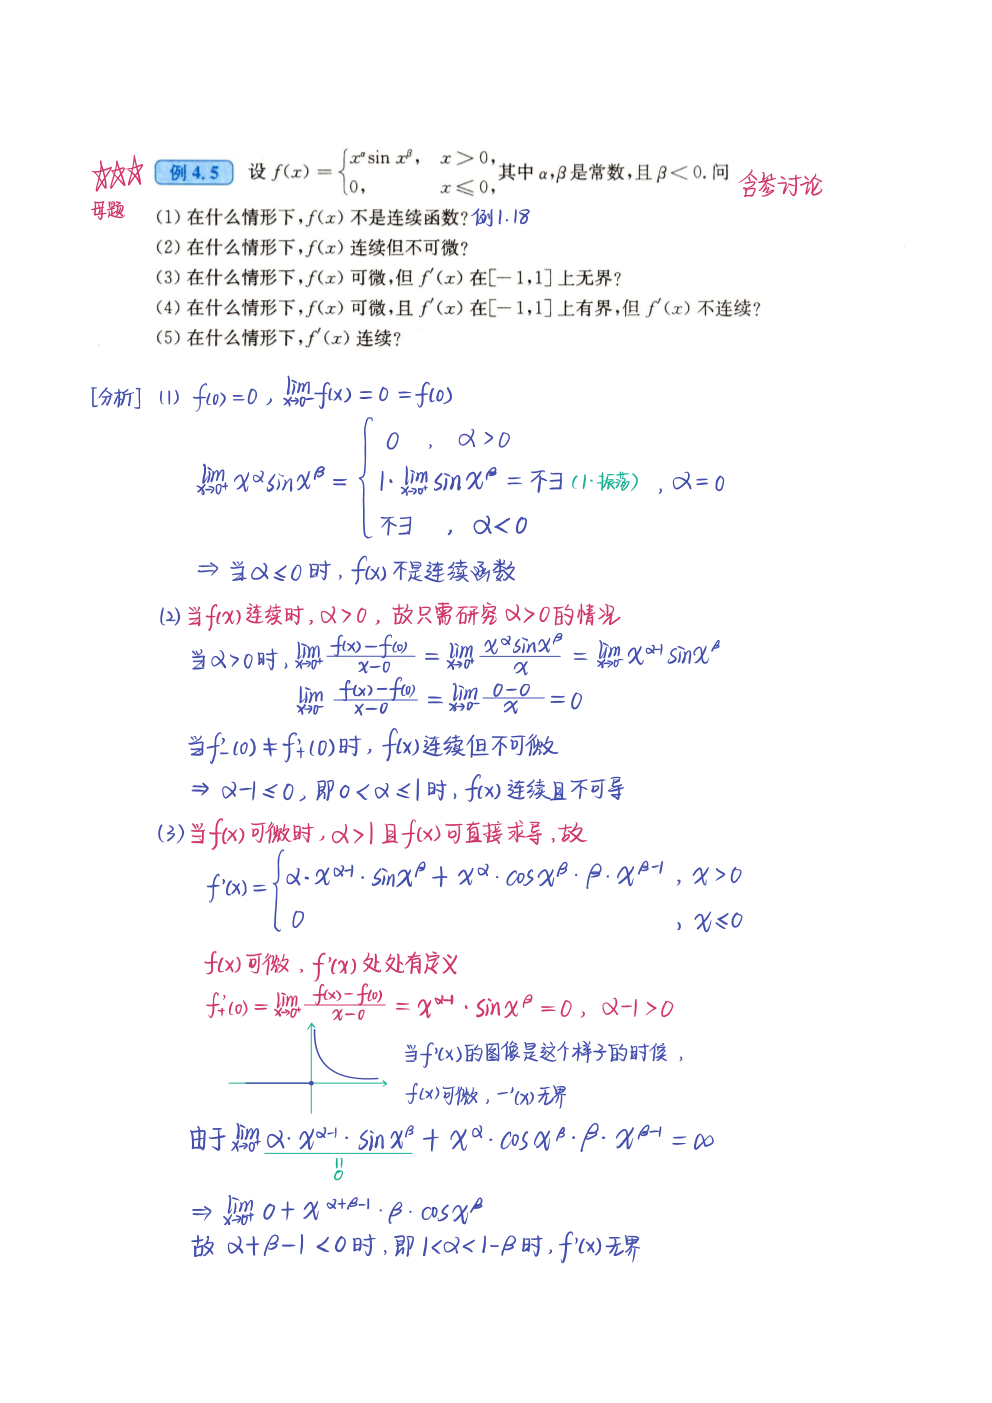 ☆☆☆ 例 4.5 设 f(x) = { x^α sin x^β, x > 0, 0, x ≤ 0, 其中 α,β 是常数,且 β < 0. 问 含参讨论
母题
(1) 在什么情形下,f(x) 不是连续函数? 例1.18
(2) 在什么情形下,f(x) 连续但不可微?
(3) 在什么情形下,f(x) 可微,但 f′(x) 在[−1,1] 上无界?
(4) 在什么情形下,f(x) 可微,且 f′(x) 在[−1,1] 上有界,但 f′(x) 不连续?
(5) 在什么情形下,f′(x) 连续?
[分析] (1) f(0) = 0 , lim x→0⁻ f(x) = 0 = f(0)
lim x→0⁺ x^α sin x^β = {
0 , α > 0
1· lim x→0⁺ sin x^β = 不∃ (1·振荡) , α = 0
不∃ , α < 0
⇒ 当 α ≤ 0 时, f(x) 不是连续函数
(2) 当 f(x) 连续时, α > 0 , 故只需研究 α > 0 的情况
当 α > 0 时, lim x→0⁺ (f(x)−f(0))/(x−0) = lim x→0⁺ (x^α sin x^β)/x = lim x→0⁻ x^(α-1) sin x^β
lim x→0⁻ (f(x)−f(0))/(x−0) = lim x→0⁻ (0−0)/x = 0
当 f′₋(0) ≠ f′₊(0) 时, f(x) 连续但不可微
⇒ α−1 ≤ 0 , 即 0 < α ≤ 1 时, f(x) 连续且不可导
(3) 当 f(x) 可微时, α > 1 且 f(x) 可直接求导, 故
f′(x) = { α · x^(α-1) · sin x^β + x^α · cos x^β · β · x^(β−1) , x > 0
0 , x ≤ 0
f(x) 可微, f′(x) 处处有定义
f′₊(0) = lim x→0⁺ (f(x)−f(0))/(x−0) = x^(α-1) · sin x^β = 0 , α−1 > 0
当 f′(x) 的图像是这个样子的时候,
f(x) 可微, 一′(x) 无界
由于 lim x→0⁺ α· x^(α−1) · sin x^β + x^α · cos x^β · β · x^(β−1) = ∞
=
0
⇒ lim x→0⁺ 0 + x^(α+β−1) · β · cos x^β
故 α+β−1 < 0 时, 即 1<α<1−β 时, f′(x) 无界